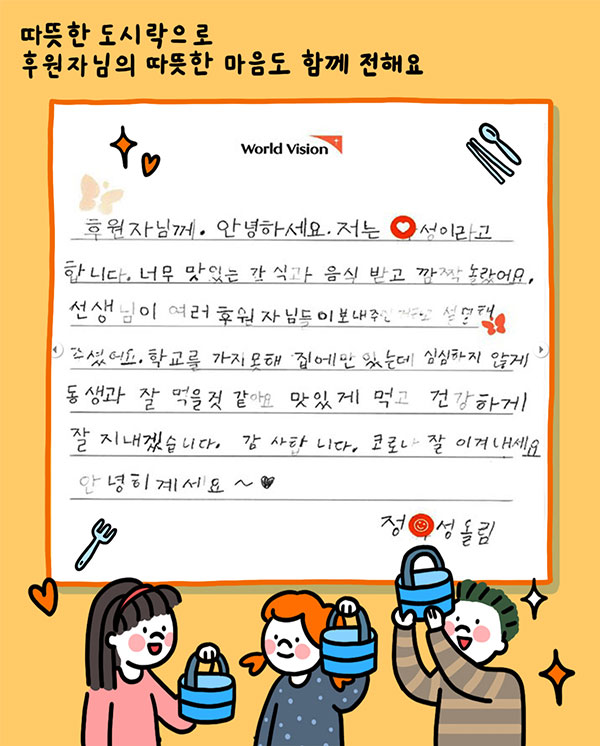 따뜻한 도시락으로
후원자님의 따뜻한 마음도 함께 전해요
World Vision
후원자님께. 안녕하세요. 저는 성이라고
합니다. 너무 맛있는 간식과 음식 받고 깜짝 놀랐어요.
선생님이 여러 후원자님들이 보내주신 설명해
주셨어요. 학교를 가지못해 집에만 있는데 심심하지 않게
동생과 잘 먹을것 같아요 맛있게 먹고 건강하게
잘 지내겠습니다. 감사합니다. 코로나 잘 이겨내세요
안녕히계세요~
정 성올림